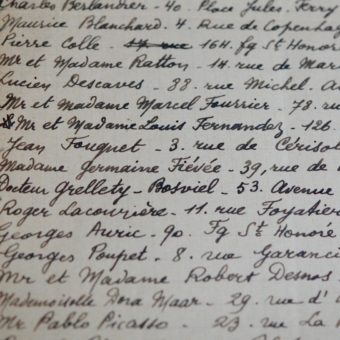 Charles Berlandrer - 40 Place Jules Ferry
Maurice Blanchard. 4. Rue de Copenhag
Pierre Colle - 164. Fg St Honoré
Mr et Madame Ratton - 14. rue de Mar
Lucien Descaves - 38. rue Michel. A
Mr et Madame Marcel Fourrier - 78. ru
Mr et Madame Louis Fernandez - 126.
Jean Fougnet - 3. rue de Cérisol
Madame Germaine Fiévée - 39, rue de
Docteur Grellety - Bosviel - 53. Avenue
Roger Lacourière - 11. rue Foyatier
Georges Auric - 90. Fg St Honoré
Georges Poupet - 8. rue Garanci
Mr et Madame Robert Desnos -
Mademoiselle Dora Maar - 29. rue d'
Mr Pablo Picasso - 23. rue La